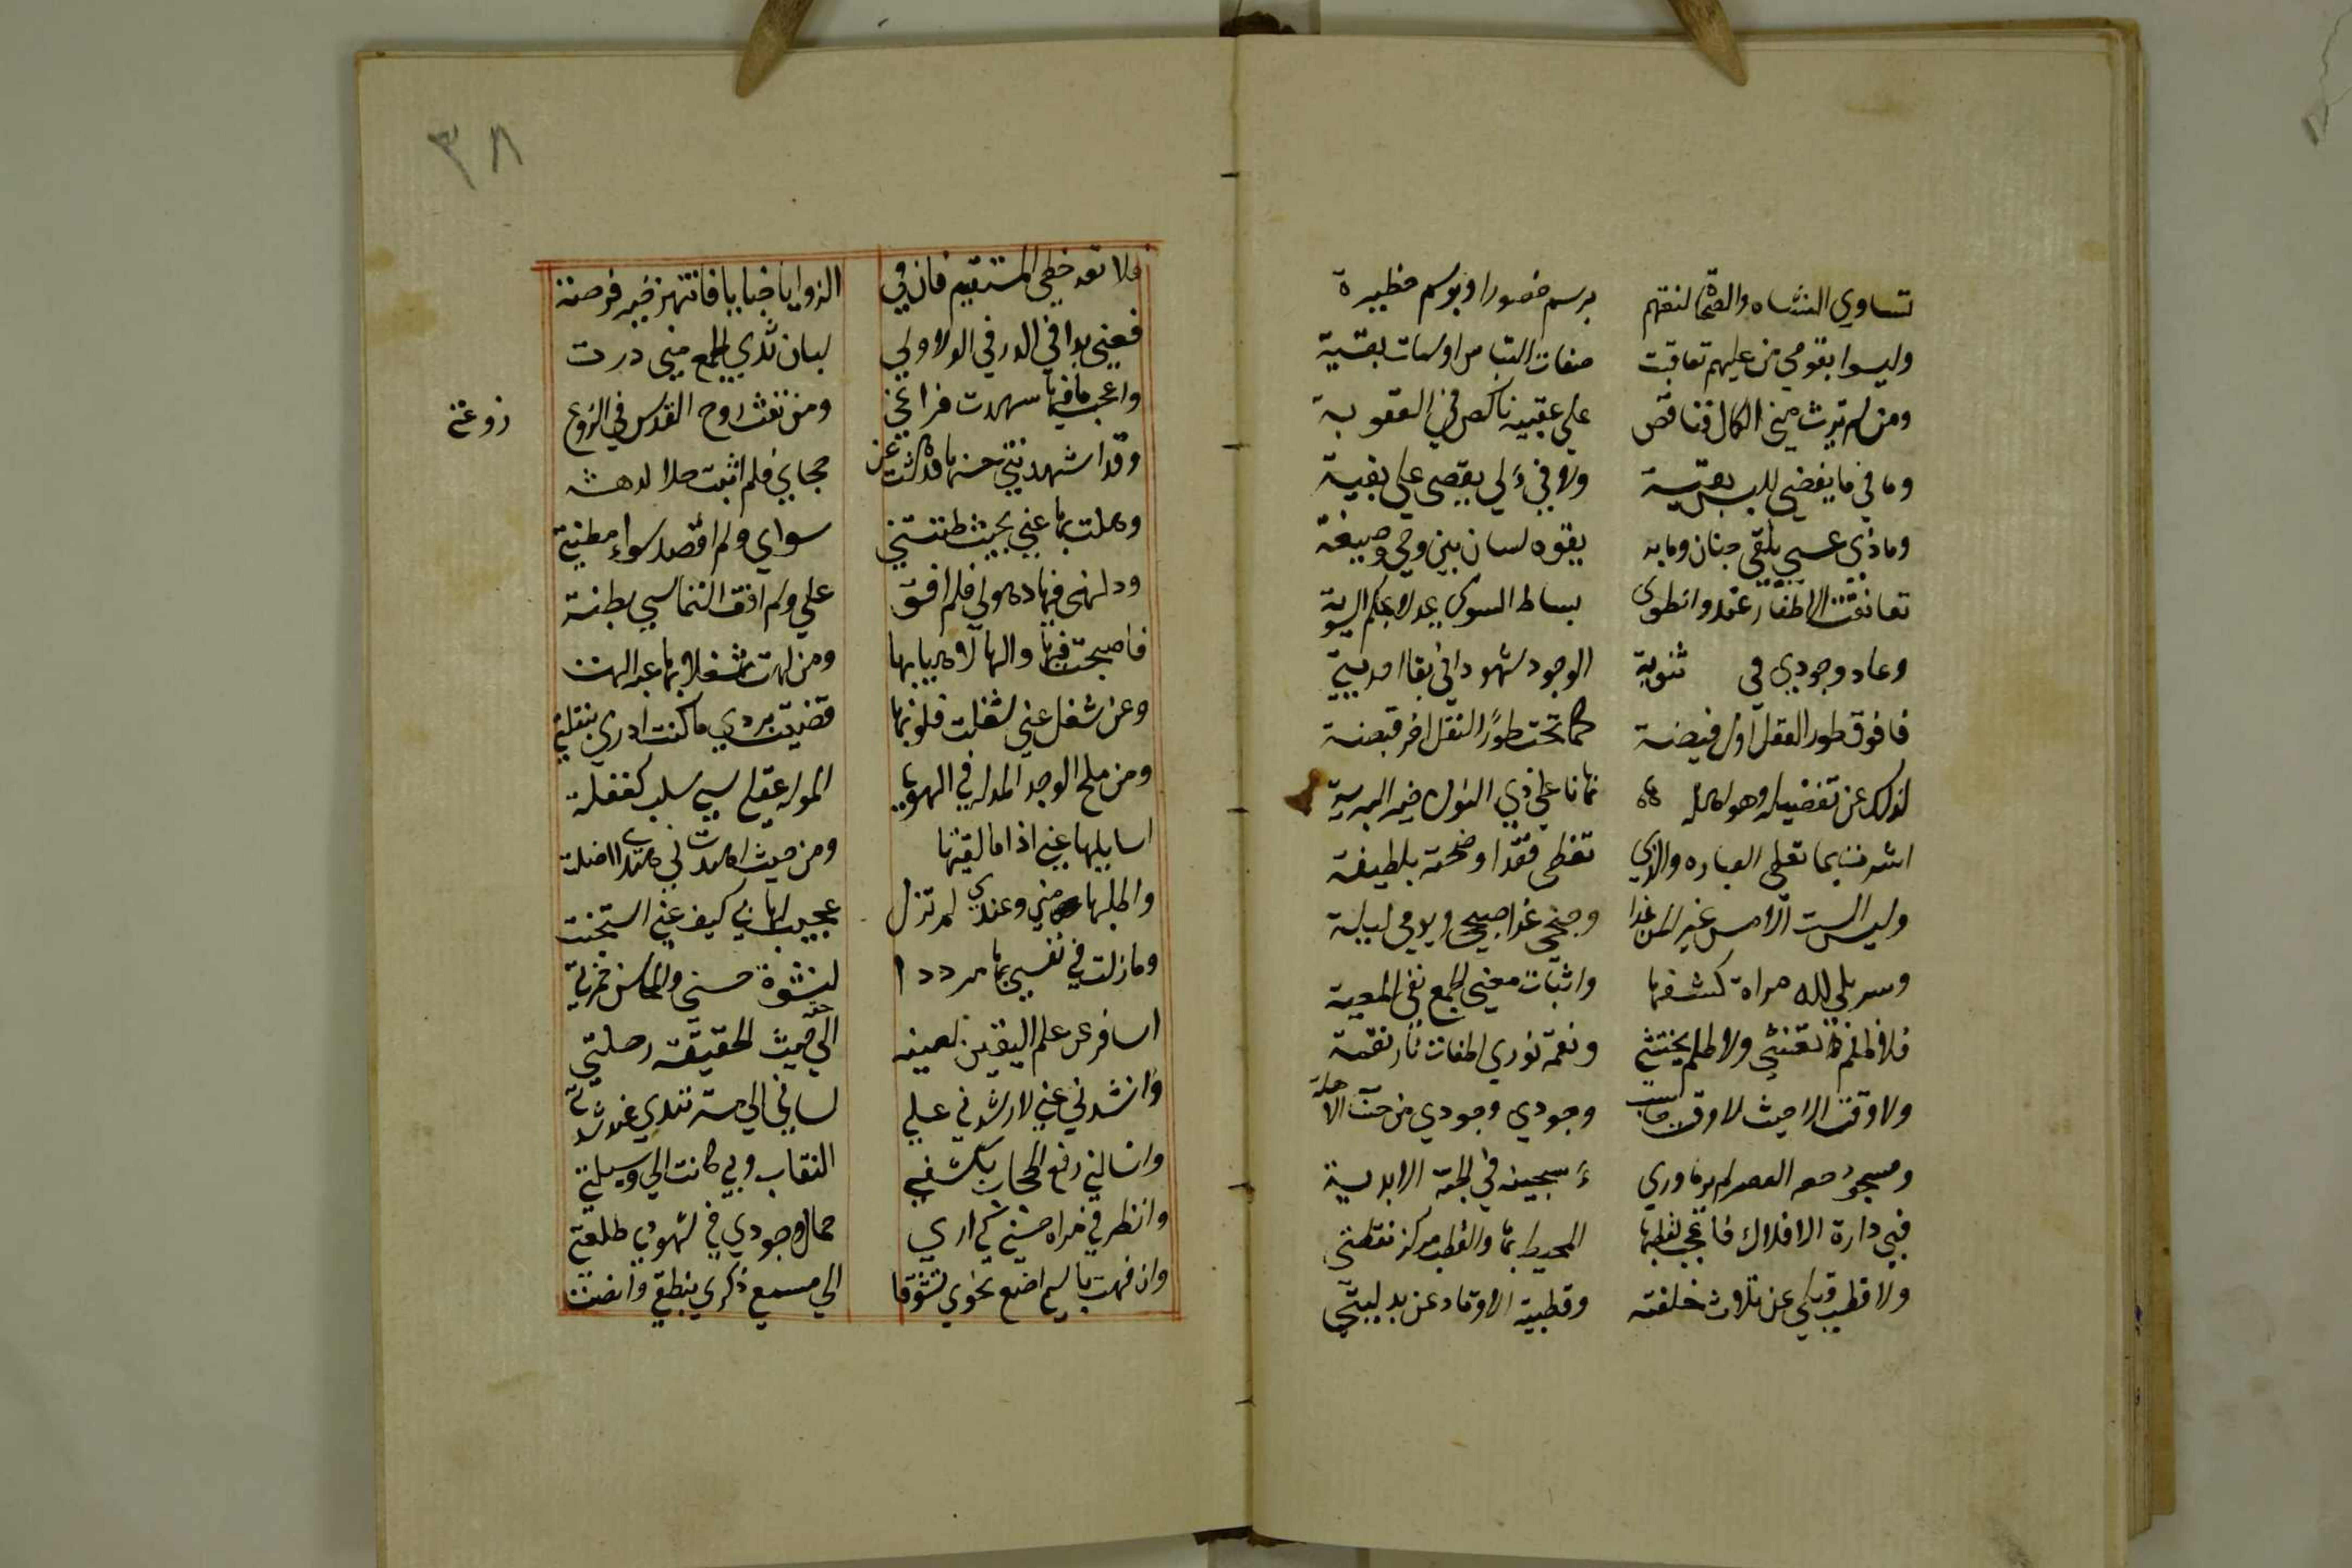 تساوي النشاه والصحاة لنعتهم برسم حضورا وبوسم حظيرة
وليسوا بقومي من عليهم تعاقبت صفات التباس اوسمات بقية
ومن لم يرث مني الكمال فناقص على عقبيه ناكص في العقوبة
وما في ما يفضي للبس بقية ولا فئ لي يقضي علي بفية
وماذى عسى يلقى جنان وما به يفوه لسان بين وحي وصيغة
تعانقت الاطراف عندي وانطوى بساط السوى عدلا بحكم السوية
وعاد وجودي في ثنوية الوجود شهودا في بقا احديتي
فما فوق طور العقل اول فيضة كما تحت طور النقل اخر قبضة
لذلك عن تفضيله وهو اهله نهانا على ذي النون خير البرية
اشرت بما تعطي العباره والذي تغطى فقد اوضحته بلطيفة
وليس الست الامس غير لمن غدا وجنحي غدا صبحي ويومي ليلة
وسر بلى لله مراة كشفها واثبات معنى الجمع نفي المعية
فلا ظلم تغشى ولا ظلم يختشى ونعمة نوري اطفات نار نقمة
ولا وقت الا حيث لا وقت حاسب وجودي وجودي من حساب الاهلة
ومسجون حصر العصر لم ير ما وراء سجينه في الجنة الابدية
فبي دارة الافلاك فاعجب لقطبها المحيط بها والقطب مركز نقطتي
ولا قطب قبلي عن ثلاث خلفته وقطبية الاوتاد عن بدليتي
٣٨
فلا تعد خطي المستقيم فان في الزوايا خبايا فانتهز خير فرصة
فعني بدا في الذر في الولا ولي لبان ثدي الجمع مني درت
واعجب ما فيها شهدت فراعني ومن نفث روح القدس في الروع
روعتي
وقد اشهدتني حسنها فدهشت عن حجاي فلم اثبت حلا لدهشه
وهلت بها عني بحيث ظننتني سواي ولم اقصد سواء مظنتي
ودلهني فيها ذهولي فلم افق علي ولم اقف التماسي بظنة
فاصبحت فيها والها لاهيا بها ومن ولهت شغلا بها عنه الهت
وعن شغل عني شغلت فلو بها قضيت ردي ما كنت ادري بنقلتي
ومن ملح الوجد المدله في الهوى المولّه عقلي سبي سلب كغفلة
اسايلها عني اذا ما لقيتها ومن حيث اهدت لي هداي اضلت
واطلبها مني وعندي لم تزل عجبت لها بي كيف عني استجنت
وما زلت في نفسي بها مرددا لنشوة حسي والمحاسن خمرتي
اسافر عن علم اليقين لعينه الى حقه حيث الحقيقة رحلتي
وانشدني عني لارشدني على لساني الى مسترشدي عند نشدتي
واسالني رفع الحجاب بكشفي النقاب وبي كانت الي وسيلتي
وانظر في مراه حسني كي ارى جمال وجودي في شهودي طلعتي
وان فهت باسمي اصغ نحوي تشوقا الى مسمع ذكري بنطقي وانصت